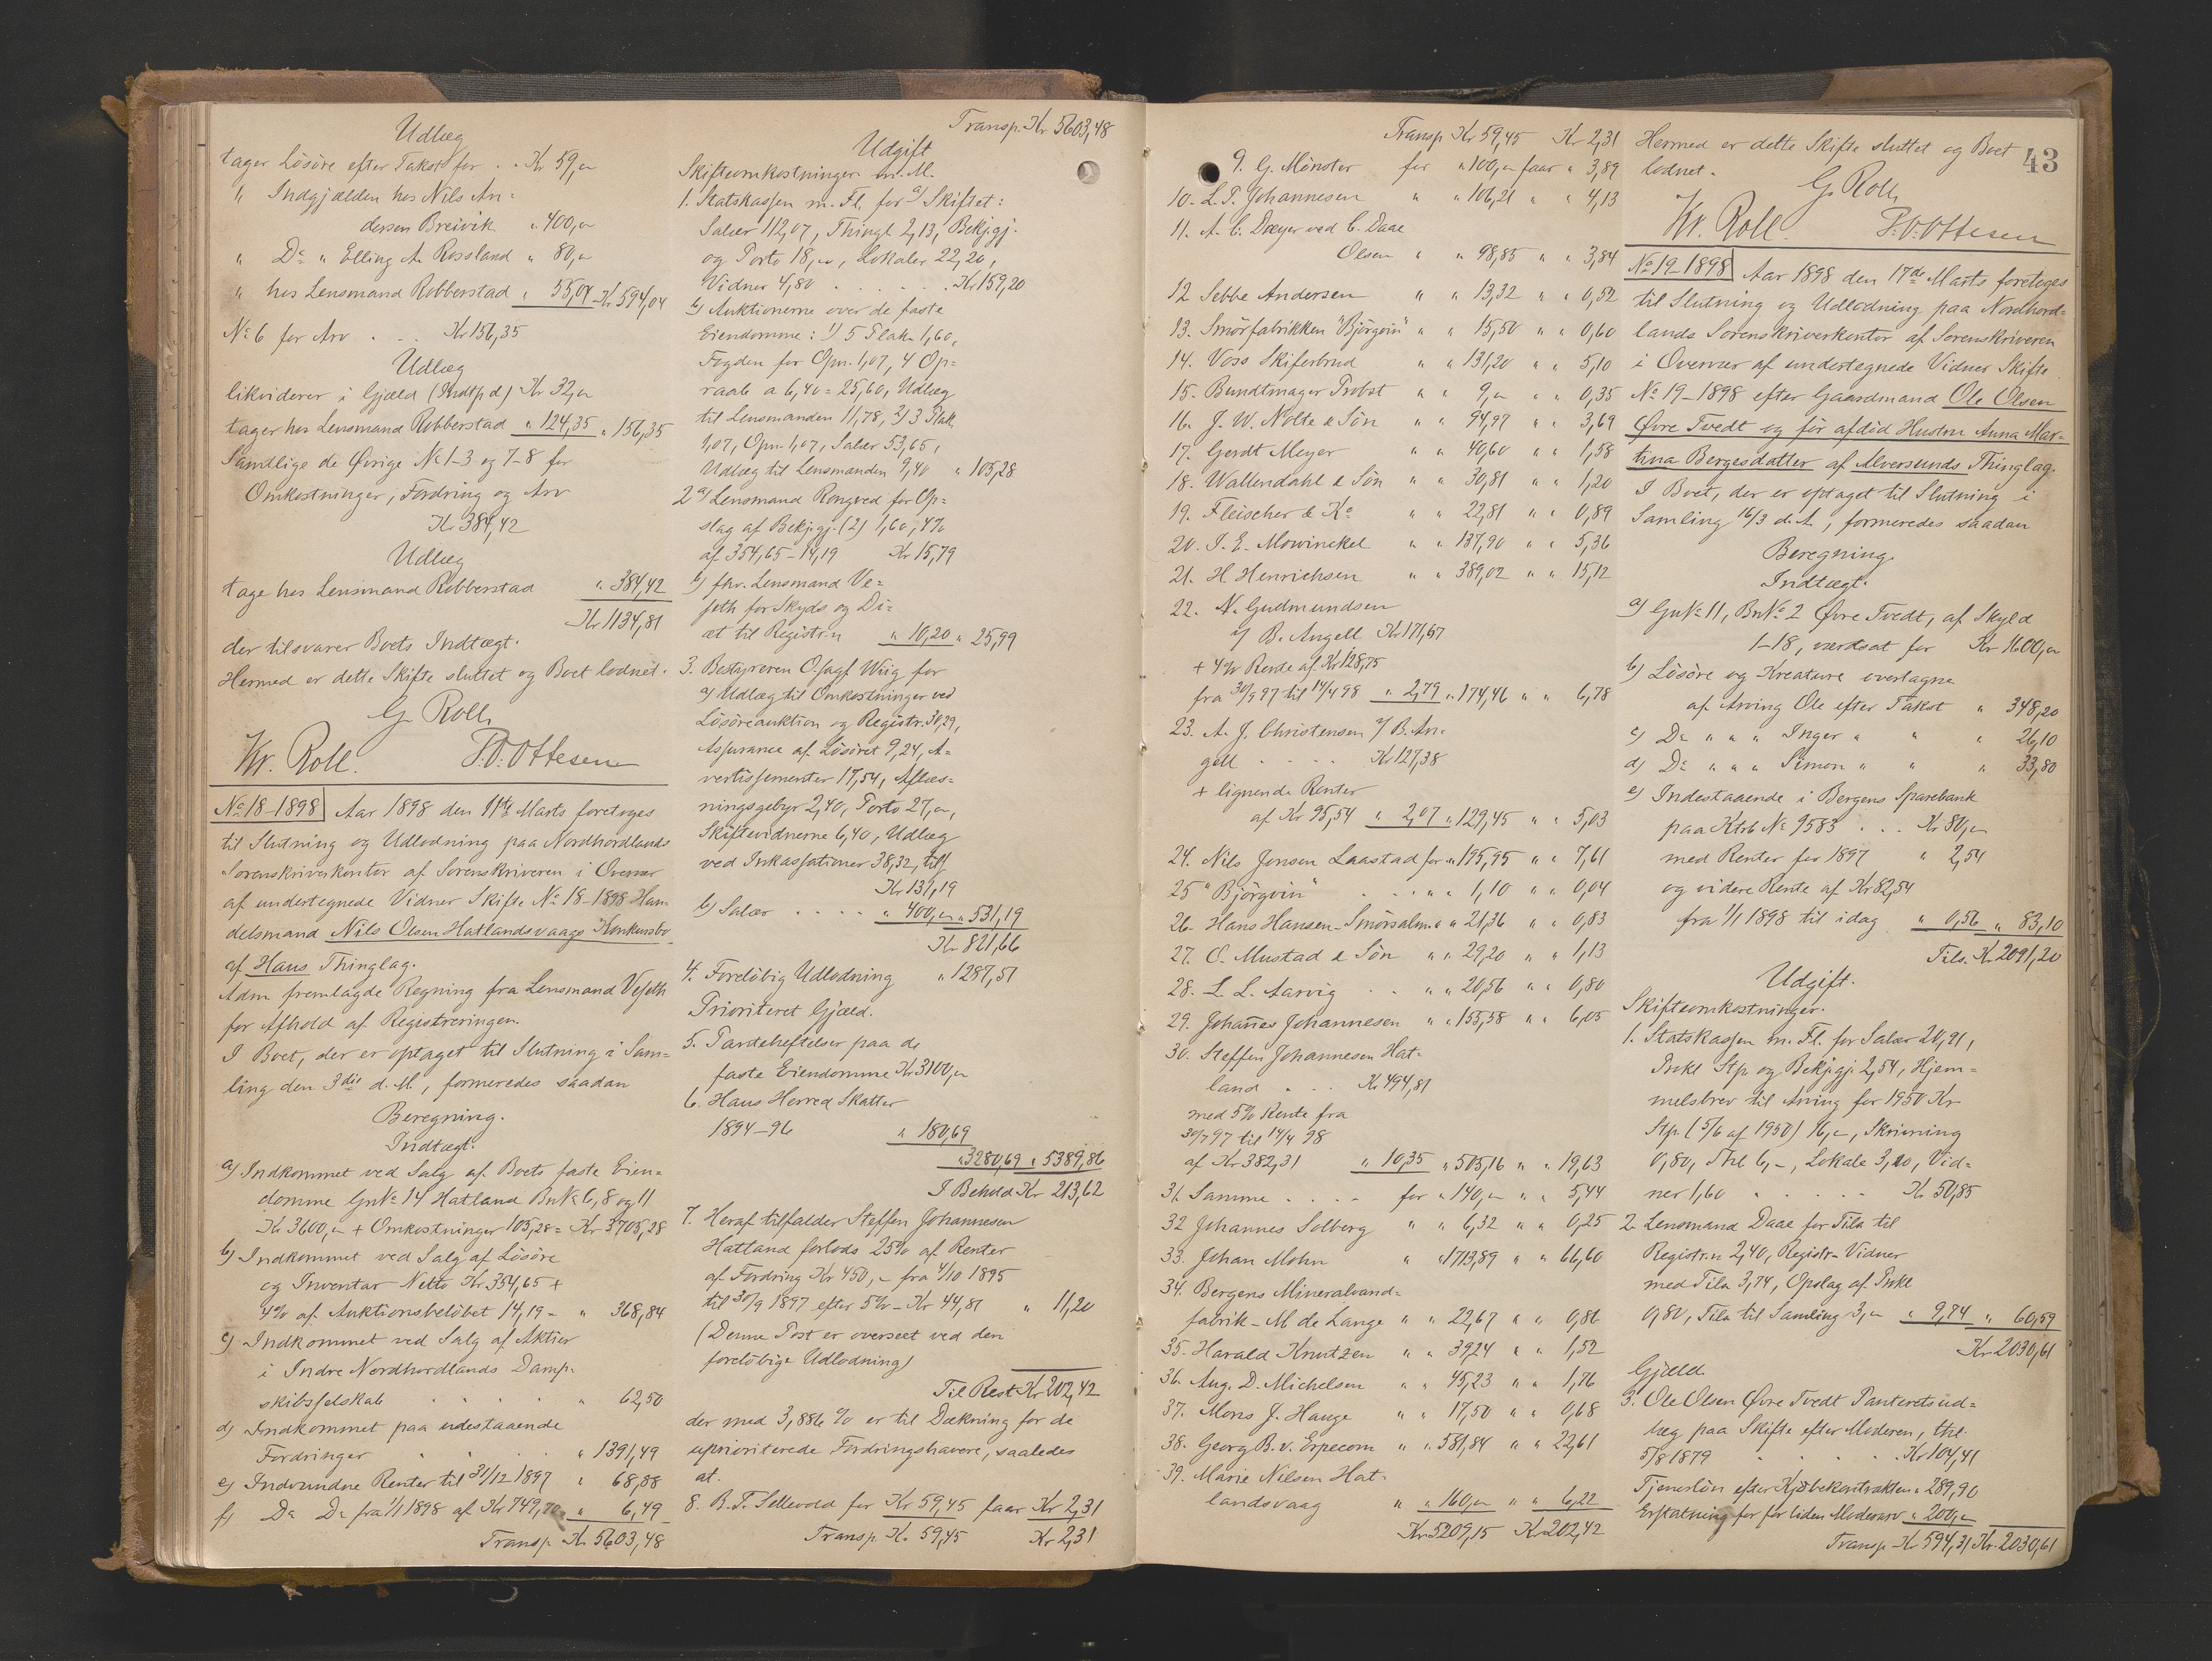 Udlæg
tager Lösöre efter Takst for . . Kr 59,"
" Indgjælden hos Nils An=
dersen Breivik " 400,"
" Do " Elling A. Rossland " 80,"
" hos Lensmand Robberstad " 55,04 Kr 594,04
No 6 for Arv . . . Kr 156,35
Udlæg
likviderer i Gjæld (Indtp d) Kr 32,"
tager hos Lensmand Robberstad " 124,35 " 156,35
Samtlige de Øvrige No 1-3 og 7-8 for
Omkostninger, Fordring og Arv
Kr 384,42
Udlæg
tage hos Lensmand Robberstad " 384,42
Kr 1134,81
der tilsvarer Boets Indtægt.
Hermed er dette Skifte sluttet og Boet lodnet.
G. Roll
Kr. Roll. P.O. Ottesen
No 18-1898 Aar 1898 den 11te Marts foretoges
til Slutning og Udlodning paa Nordhordlands
Sorenskriverkontor af Sorenskriveren i Overvær
af undertegnede Vidner Skifte No 18-1898 Han=
delsmand Nils Olsen Hatlandsvaags Konkursbo
af Haus Thinglag.
Adm. fremlagde Regning fra Lensmand Vefseth
for Afhold af Registreringen.
I Boet, der er optaget til Slutning i Sam=
ling den 3die d. M., formeredes saadan
Beregning.
Indtægt.
a) Indkommet ved Salg af Boets faste Eien=
domme GnNo 14 Hatland BnNo 6, 8 og 11
Kr 3600,- + Omkostninger 105,28 = Kr 3705,28
b) Indkommet ved Salg af Lösöre
og Inventar Netto Kr. 354,65 +
4% af Auktionsbelöbet 14,19 - " 368,84
c) Indkommet ved Salg af Aktier
i Indre Nordhordlands Damp-
skibsselskab . . . . " 62,50
d) Indkommet paa udestaaende
Fordringer . . . . " 1391,49
e) Indvundne Renter til 31/12 1897 " 68,88
f) Do Do fra 1/1 1898 af Kr 749,70 " 6,49
Transp. Kr. 5603,48
Transp. Kr 5603,48
Udgift
Skifteomkostninger m. M.
1. Statskassen m. Fl. for a) Skiftet:
Salær 112,07, Thingl 2,13, Bekjgj.
og Porto 18,", Lokaler 22,20,
Vidner 4,80 . . . . . . Kr 159,20
b) Auktionerne over de faste
Eiendomme: 1) 5 Plak. 1,60,
Fogden for Opn. 1,07, 4 Op=
raab a 6,40 = 25,60, Udlæg
til Lensmanden 11,78, 2) 3 Plak.
1,07, Opn. 1,07, Salær 53,65,
Udlæg til Lensmanden 9,40 " 105,28
2 a) Lensmand Rongved for Op=
slag af Bekjgj. (2) 1,60, 4%
af 354,65 - 14,19 Kr 15,79
b) fhv. Lensmand Ve=
fseth for Skyds og Di=
æt til Registr.n " 10,20 " 25,99
3. Bestyreren O.sagf. Wiig for
a) Udlæg til Omkostninger ved
Lösöreauktion og Registr. 30,29,
Assurance af Lösöret 9,24, A=
vertissementer 17,54, Aflæs=
ningsgebyr 2,40, Porto 27,",
Skiftevidnerne 6,40, Udlæg
ved Inkassationer 38,32, tils
Kr 131,19
b) Salær . . . . " 400,- " 531,19
Kr 821,66
4. Forelöbig Udlodning " 1287,51
Prioriteret Gjæld.
5. Pandeheftelser paa de
faste Eiendomme Kr 3100,"
6. Haus Herred Skatter
1894-96 " 180,69
" 3280,69 " 5389,86
I Behold Kr 213,62
7. Heraf tilfalder Steffen Johannesen
Hatland forlods 25% af Renter
af Fordring Kr 450,- fra 4/10 1895
til 30/9 1897 efter 5% - Kr 44,81 " 11,20
(Denne Post er overseet ved den
forelöbige Udlodning)
Til Rest Kr 202,42
der med 3,886% er til Dækning for de
uprioriterede Fordringshavere, saaledes
at.
8. B. T. Sellevold for Kr 59,45 faar Kr 2,31
Transp. Kr. 59,45 Kr 2,31
Transp Kr 59,45 Kr 2,31
9. G. Mönster for " 100,- faar " 3,89
10. L. P. Johannesen " " 106,21 " " 4,13
11. A. C. Dreyer ved C. Daae
Olsen " " 98,85 " " 3,84
12 Sebbe Andersen " " 13,32 " " 0,52
13. Smörfabrikken "Björgvin" " " 15,50 " " 0,60
14. Voss Skiferbrud " " 131,20 " " 5,10
15. Bundtmager Probst " " 9,- " " 0,35
16. J. W. Nolte & Sön " " 94,97 " " 3,69
17. Gerdt Meyer " " 40,60 " " 1,58
18. Wallendahl & Sön " " 30,81 " " 1,20
19. Fleischer & Ko " " 22,81 " " 0,89
20. J. E. Mowinckel " " 137,90 " " 5,36
21. H. Henrichsen " " 389,02 " " 15,12
22. N. Gudmundsen
v/ B. Angell Kr 171,67
+ 4% Rente af Kr 128,75
fra 30/9 97 til 14/4 98 " 2,79 " 174,46 " " 6,78
23. A. J. Christensen v/ B. An-
gell . . . . Kr 127,38
+ lignende Renter
af Kr 95,54 " 2,07 " 129,45 " " 5,03
24. Nils Jonsen Laastad for " 195,95 " " 7,61
25 "Björgvin" . . " " 1,10 " " 0,04
26. Hans Hansen-Smörsalm. " " 21,36 " " 0,83
27. O. Mustad & Sön " " 29,20 " " 1,13
28. L. L. Aarvig . . " " 20,56 " " 0,80
29. Johannes Johannesen " " 155,58 " " 6,05
30. Steffen Johannesen Hat-
land . . . Kr 494,81
med 5% Rente fra
30/9 97 til 14/4 98
af Kr 382,31 " 10,35 " 505,16 " " 19,63
31. Samme . . . . for " 140,- " " 5,44
32 Johannes Solberg " " 6,32 " " 0,25
33. Johan Mohn " " 1713,89 " " 66,60
34. Bergens Mineralvand-
fabrik - M de Lange " " 22,67 " " 0,86
35. Harald Knutzen " " 39,24 " " 1,52
36. Aug. D. Michelsen " " 45,23 " " 1,76
37. Mons J. Hauge " " 17,50 " " 0,68
38. Georg B. v. Erpecom " " 581,84 " " 22,61
39. Marie Nilsen Hat-
landsvaag " " 160,- " " 6,22
Kr 5209,15 Kr 202,42
43
Hermed er dette Skifte sluttet og Boet
lodnet.
G. Roll
Kr. Roll. P.O. Ottesen
No 19-1898 Aar 1898 den 17de Marts foretoges
til Slutning og Udlodning paa Nordhord=
lands Sorenskriverkontor af Sorenskriveren
i Overvær af undertegnede Vidner Skifte
No 19-1898 efter Gaardmand Ole Olsen
Øvre Tvedt og för afdöd Hustru Anna Mar=
tina Bergesdatter af Alversunds Thinglag.
I Boet, der er optaget til Slutning i
Samling 16/3 d. A., formeredes saadan
Beregning.
Indtægt.
a) GnNo 11, BnNo 2 Øvre Tvedt, af Skyld
1-18, værdsat for Kr 1600,-
b) Lösöre og Kreature overtagne
af Arving Ole efter Takst " 348,20
c) Do " " " Inger " " " 26,10
d) Do " " " Simon " " " 33,80
e) Indestaaende i Bergens Sparebank
paa Ktrb No 9583 . . . Kr 80,-
med Renter for 1897 " 2,54
og videre Rente af Kr 82,54
fra 1/1 1898 til idag " 0,56 " 83,10
Tils. Kr 2091,20
Udgift.
Skifteomkostninger.
1. Statskassen m. Fl. for Salær 20,91,
Prokl Stp. og Bekjgj. 2,54, Hjem=
melsbrev til Arving for 1950 Kr
Stp. (5/6 af 1950) 16,-, Skrivning
0,80, Thl 6,-, Lokale 3,20, Vid=
ner 1,60 . . . . . Kr 50,85
2. Lensmand Daae for Tila til
Registr.n 2,40, Registr. Vidner
med Tila 3,74, Opslag af Prokl
0,80, Tila til Samling 3,- " 9,74 " 60,59
Kr 2030,61
Gjæld.
3. Ole Olsen Øvre Tvedt Panteretsud=
læg paa Skifte efter Moderen, thl.
5/8 1879 . . . . . Kr 104,41
Tjenerlön efter Kjöbekontrakten " 289,90
Erstatning for för liden Moderarv " 200,-
Transp. Kr 594,31 Kr. 2030,61